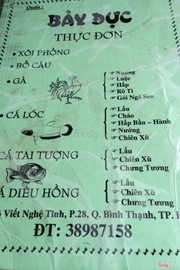 BẢY DỤC
THỰC ĐƠN
• XÔI PHỒNG
• BỒ CÂU
• GÀ
Nướng
Luộc
Hấp
Rô Ti
Gỏi Ngó Sen
• CÁ LÓC
Lẩu
Cháo
Hấp Bầu – Hành
Nướng
Chiên Xù
CÁ TAI TƯỢNG
Lẩu
Chiên Xù
Chưng Tương
CÁ DIÊU HỒNG
Lẩu
Chiên Xù
Chưng Tương
Viết Nghệ Tĩnh, P.28, Q. Bình Thạnh, TP.
ĐT: 38987158